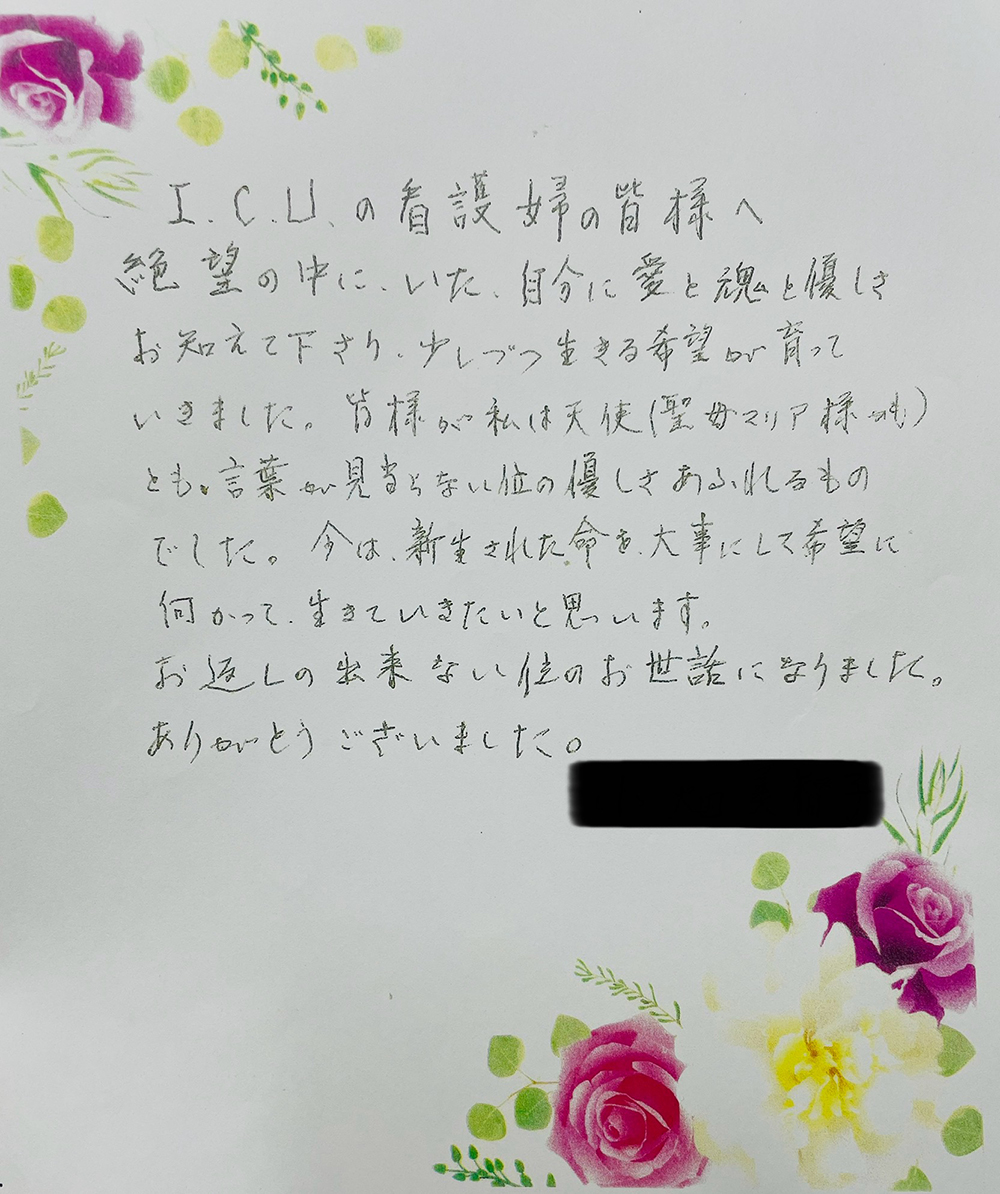 I.C.U.の看護婦の皆様へ
絶望の中に、いた、自分に愛と魂と優しさ
お知えて下さり、少しづつ生きる希望が育って
いきました。皆様が私は天使(聖母マリア様かも)
とも、言葉が見当らない位の優しさあふれるもの
でした。今は、新生された命を、大事にして希望に
何かって、生きていきたいと思います。
お返しの出来ない位のお世話になりました。
ありがとうございました。